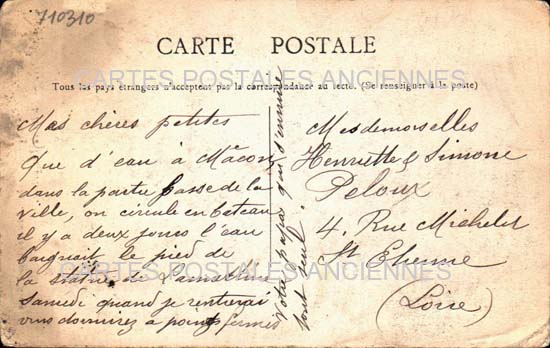 710310
CARTE POSTALE
CARTES POSTALES ANCIENNES
Tous les pays étrangers n'acceptent pas la correspondance au recto. (Se renseigner à la poste)
Mes chères petites
Que d'eau à Mâcon
dans la partie basse de la
ville, on circule en bateau
il y a deux jours l'eau
baignait le pied de
la statue de Lamartine
Samedi quand je rentrerai
vous dormirez à poings fermés
votre papa qui s'ennuie
tout seul.
Mesdemoiselles
Henriette & Simone
Peloux
4, Rue Michelet
St Etienne
(Loire)
CARTES POSTALES ANCIENNES